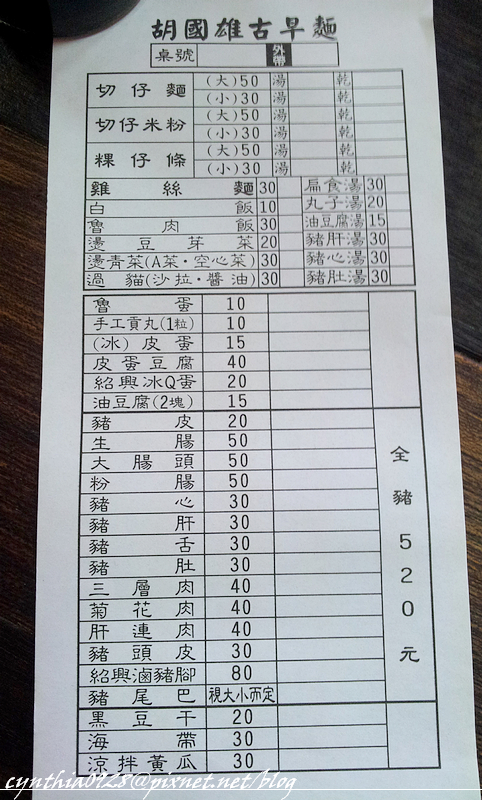 胡國雄古早麵
桌號 外帶
切仔麵 (大)50 湯 乾
(小)30 湯 乾
切仔米粉 (大)50 湯 乾
(小)30 湯 乾
粿仔條 (大)50 湯 乾
(小)30 湯 乾
雞絲麵 30 扁食湯 30
白飯 10 丸子湯 20
魯肉飯 30 油豆腐湯 15
燙豆芽菜 20 豬肝湯 30
燙青菜(A菜·空心菜) 30 豬心湯 30
過貓(沙拉·醬油) 30 豬肚湯 30
魯蛋 10
手工貢丸(1粒) 10
(冰)皮蛋 15
皮蛋豆腐 40
紹興冰Q蛋 20
油豆腐(2塊) 15
豬皮 20
生腸 50
大腸頭 50
粉腸 50
豬心 30
豬肝 30
豬舌 30
豬肚 30
三層肉 40
菊花肉 40
肝連肉 40
豬頭皮 30
紹興滷豬腳 80
豬尾巴 視大小而定
全豬520元
黑豆干 20
海帶 30
涼拌黃瓜 30
cynthia0928@pixnet.net/blog